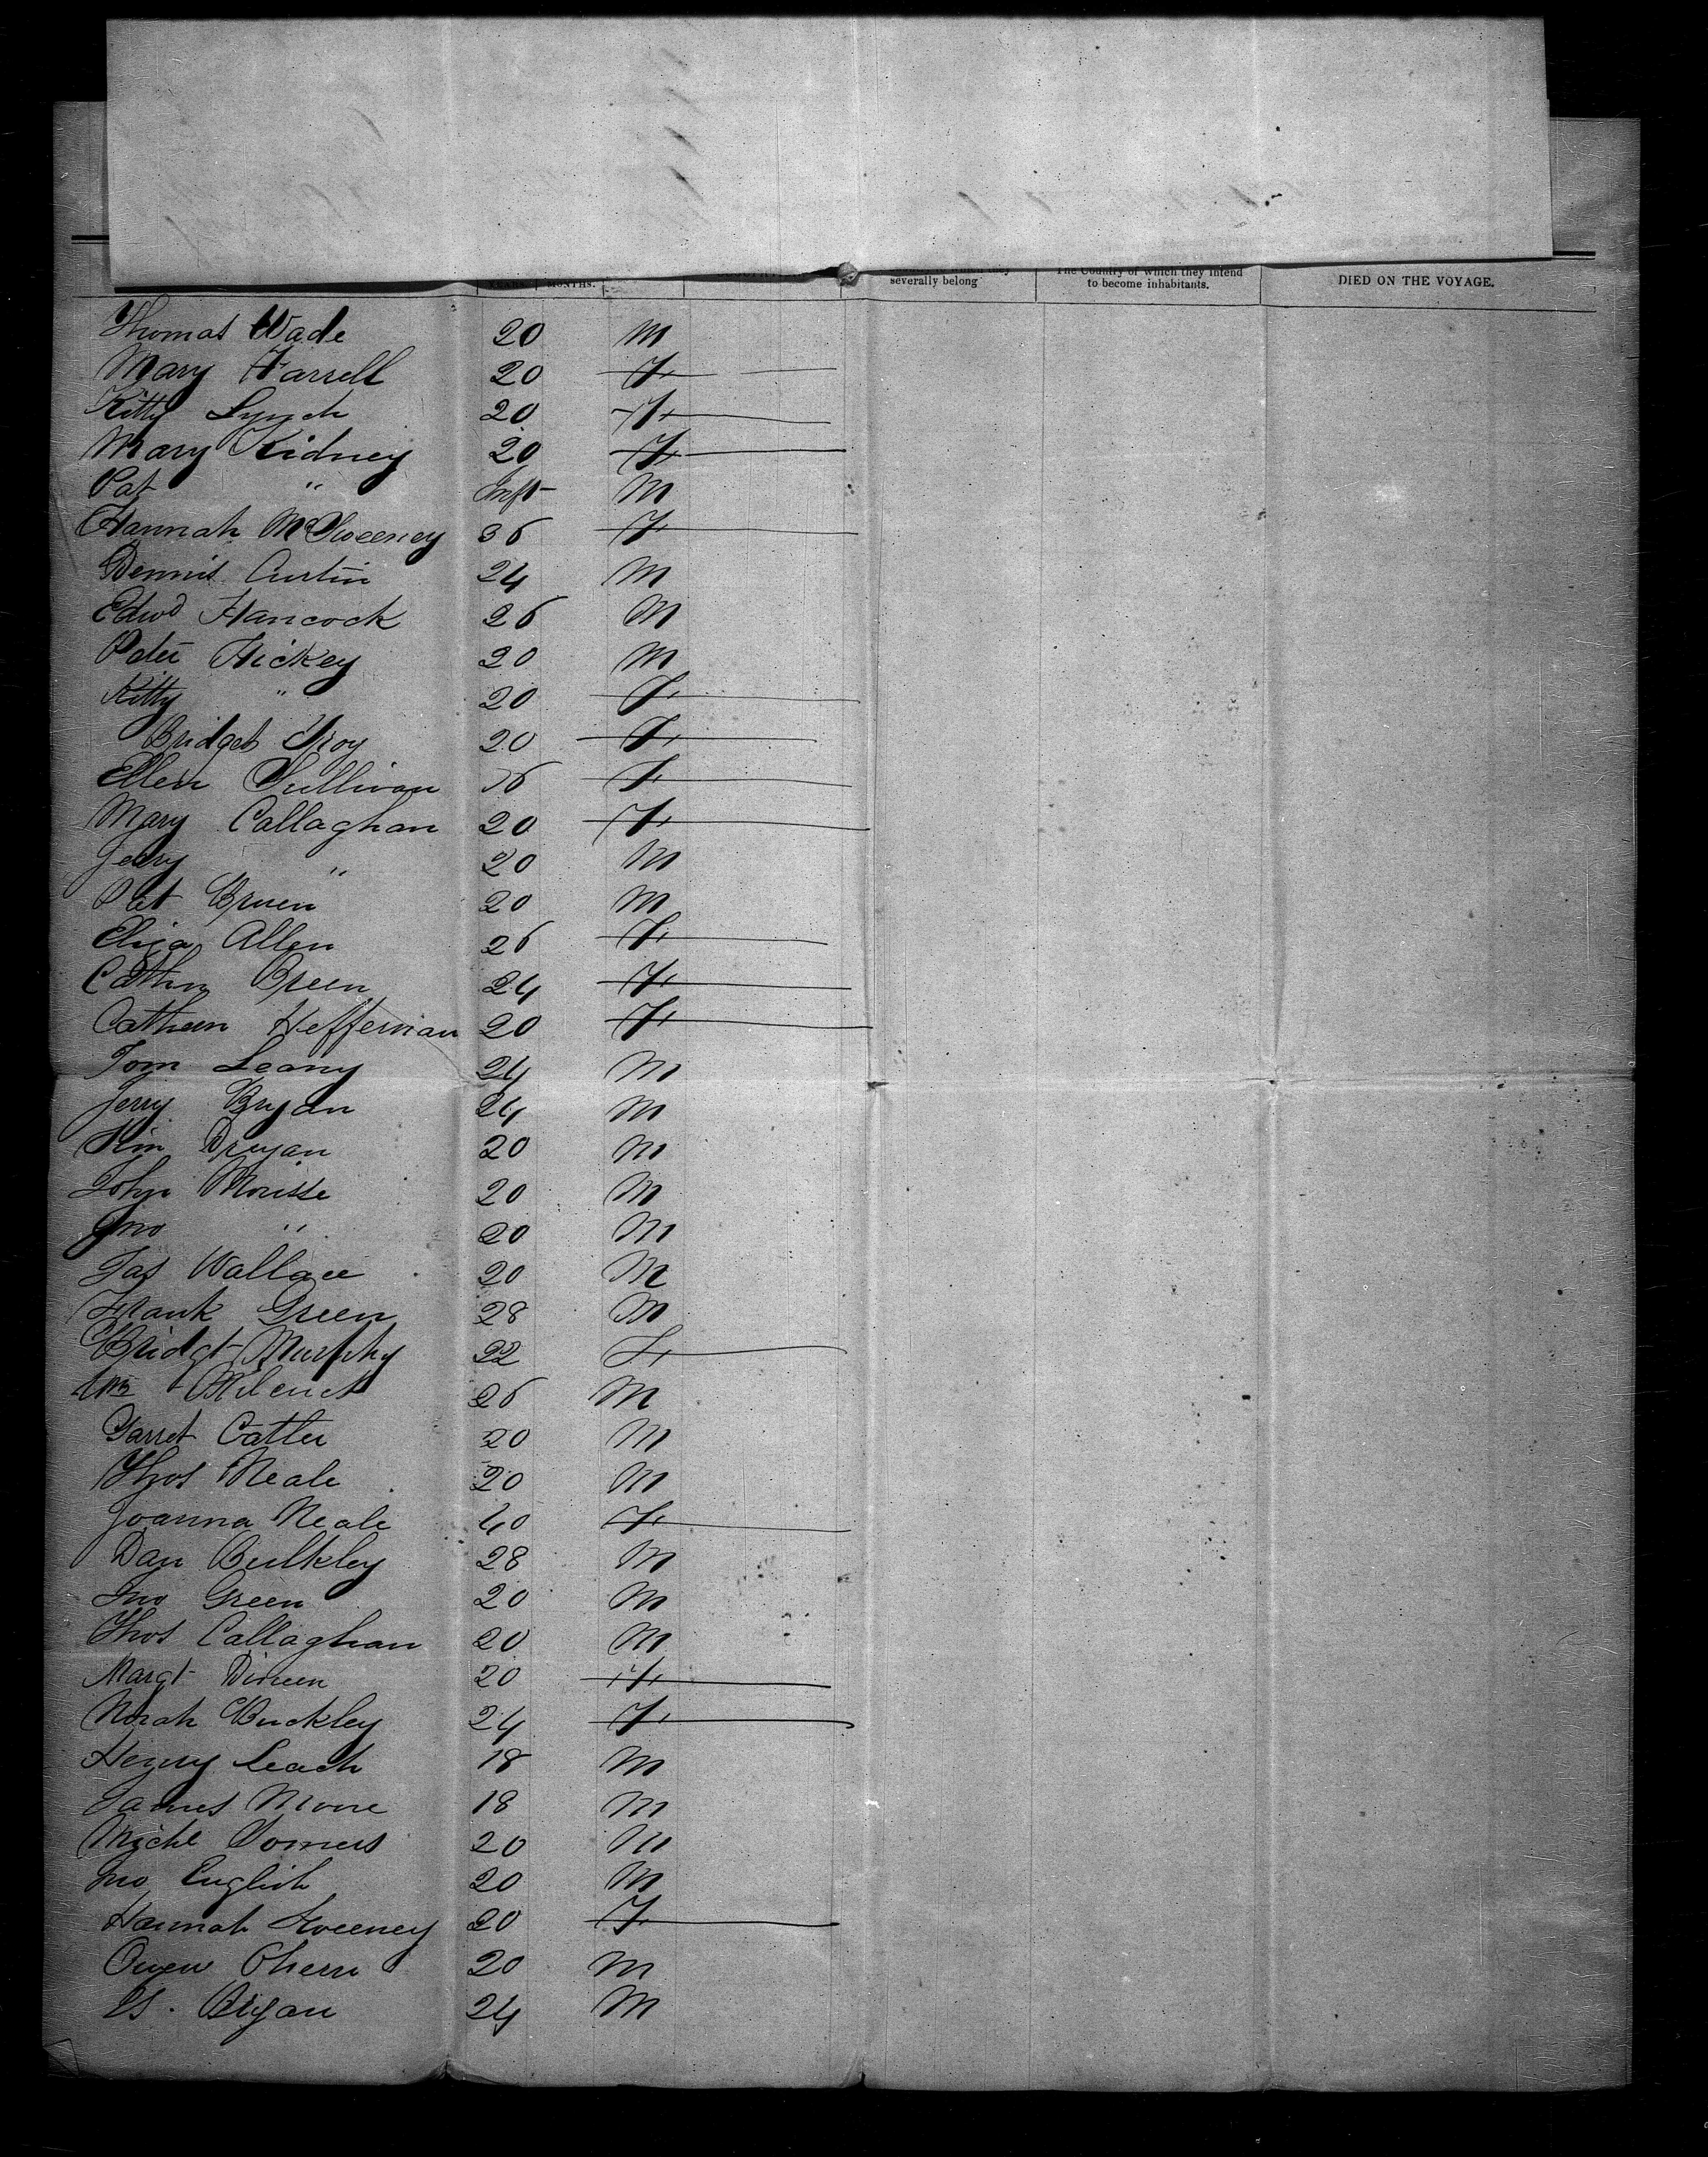 MONTHS. severally belong The Country of which they intend to become inhabitants. DIED ON THE VOYAGE.
Thomas Wade 20 M
Mary Farrell 20 F
Kitty Lynch 20 F
Mary Kidney 20 F
Pat " Inft M
Hannah McSweeney 36 F
Dennis Curtin 24 M
Edwd Hancock 26 M
Peter Hickey 20 M
Kitty " 20 F
Bridget Troy 20 F
Ellen Sullivan 16 F
Mary Callaghan 20 F
Jerry " 20 M
Pat Bruen 20 M
Eliza Allen 26 F
Cathn Breen 24 F
Catheen Heffernan 20 F
Tom Leany 24 M
Jerry Bryan 24 M
Tim Druyan 20 M
John 20 M
Jno " 20 M
Jas Wallace 20 M
Frank Green 28 M
Bridgt Murphy 22 F
Wm 26 M
Garret Catter 20 M
Thos Neale 20 M
Joanna Neale 40 F
Dan Bulkley 28 M
Jno Green 20 M
Thos Callaghan 20 M
Margt Dineen 20 F
Norah Buckley 24 F
Henry Leach 18 M
James Moore 18 M
Michl Somers 20 M
Jno English 20 M
Hannah Sweeney 20 F
Owen Ohern 20 M
Bryan 24 M